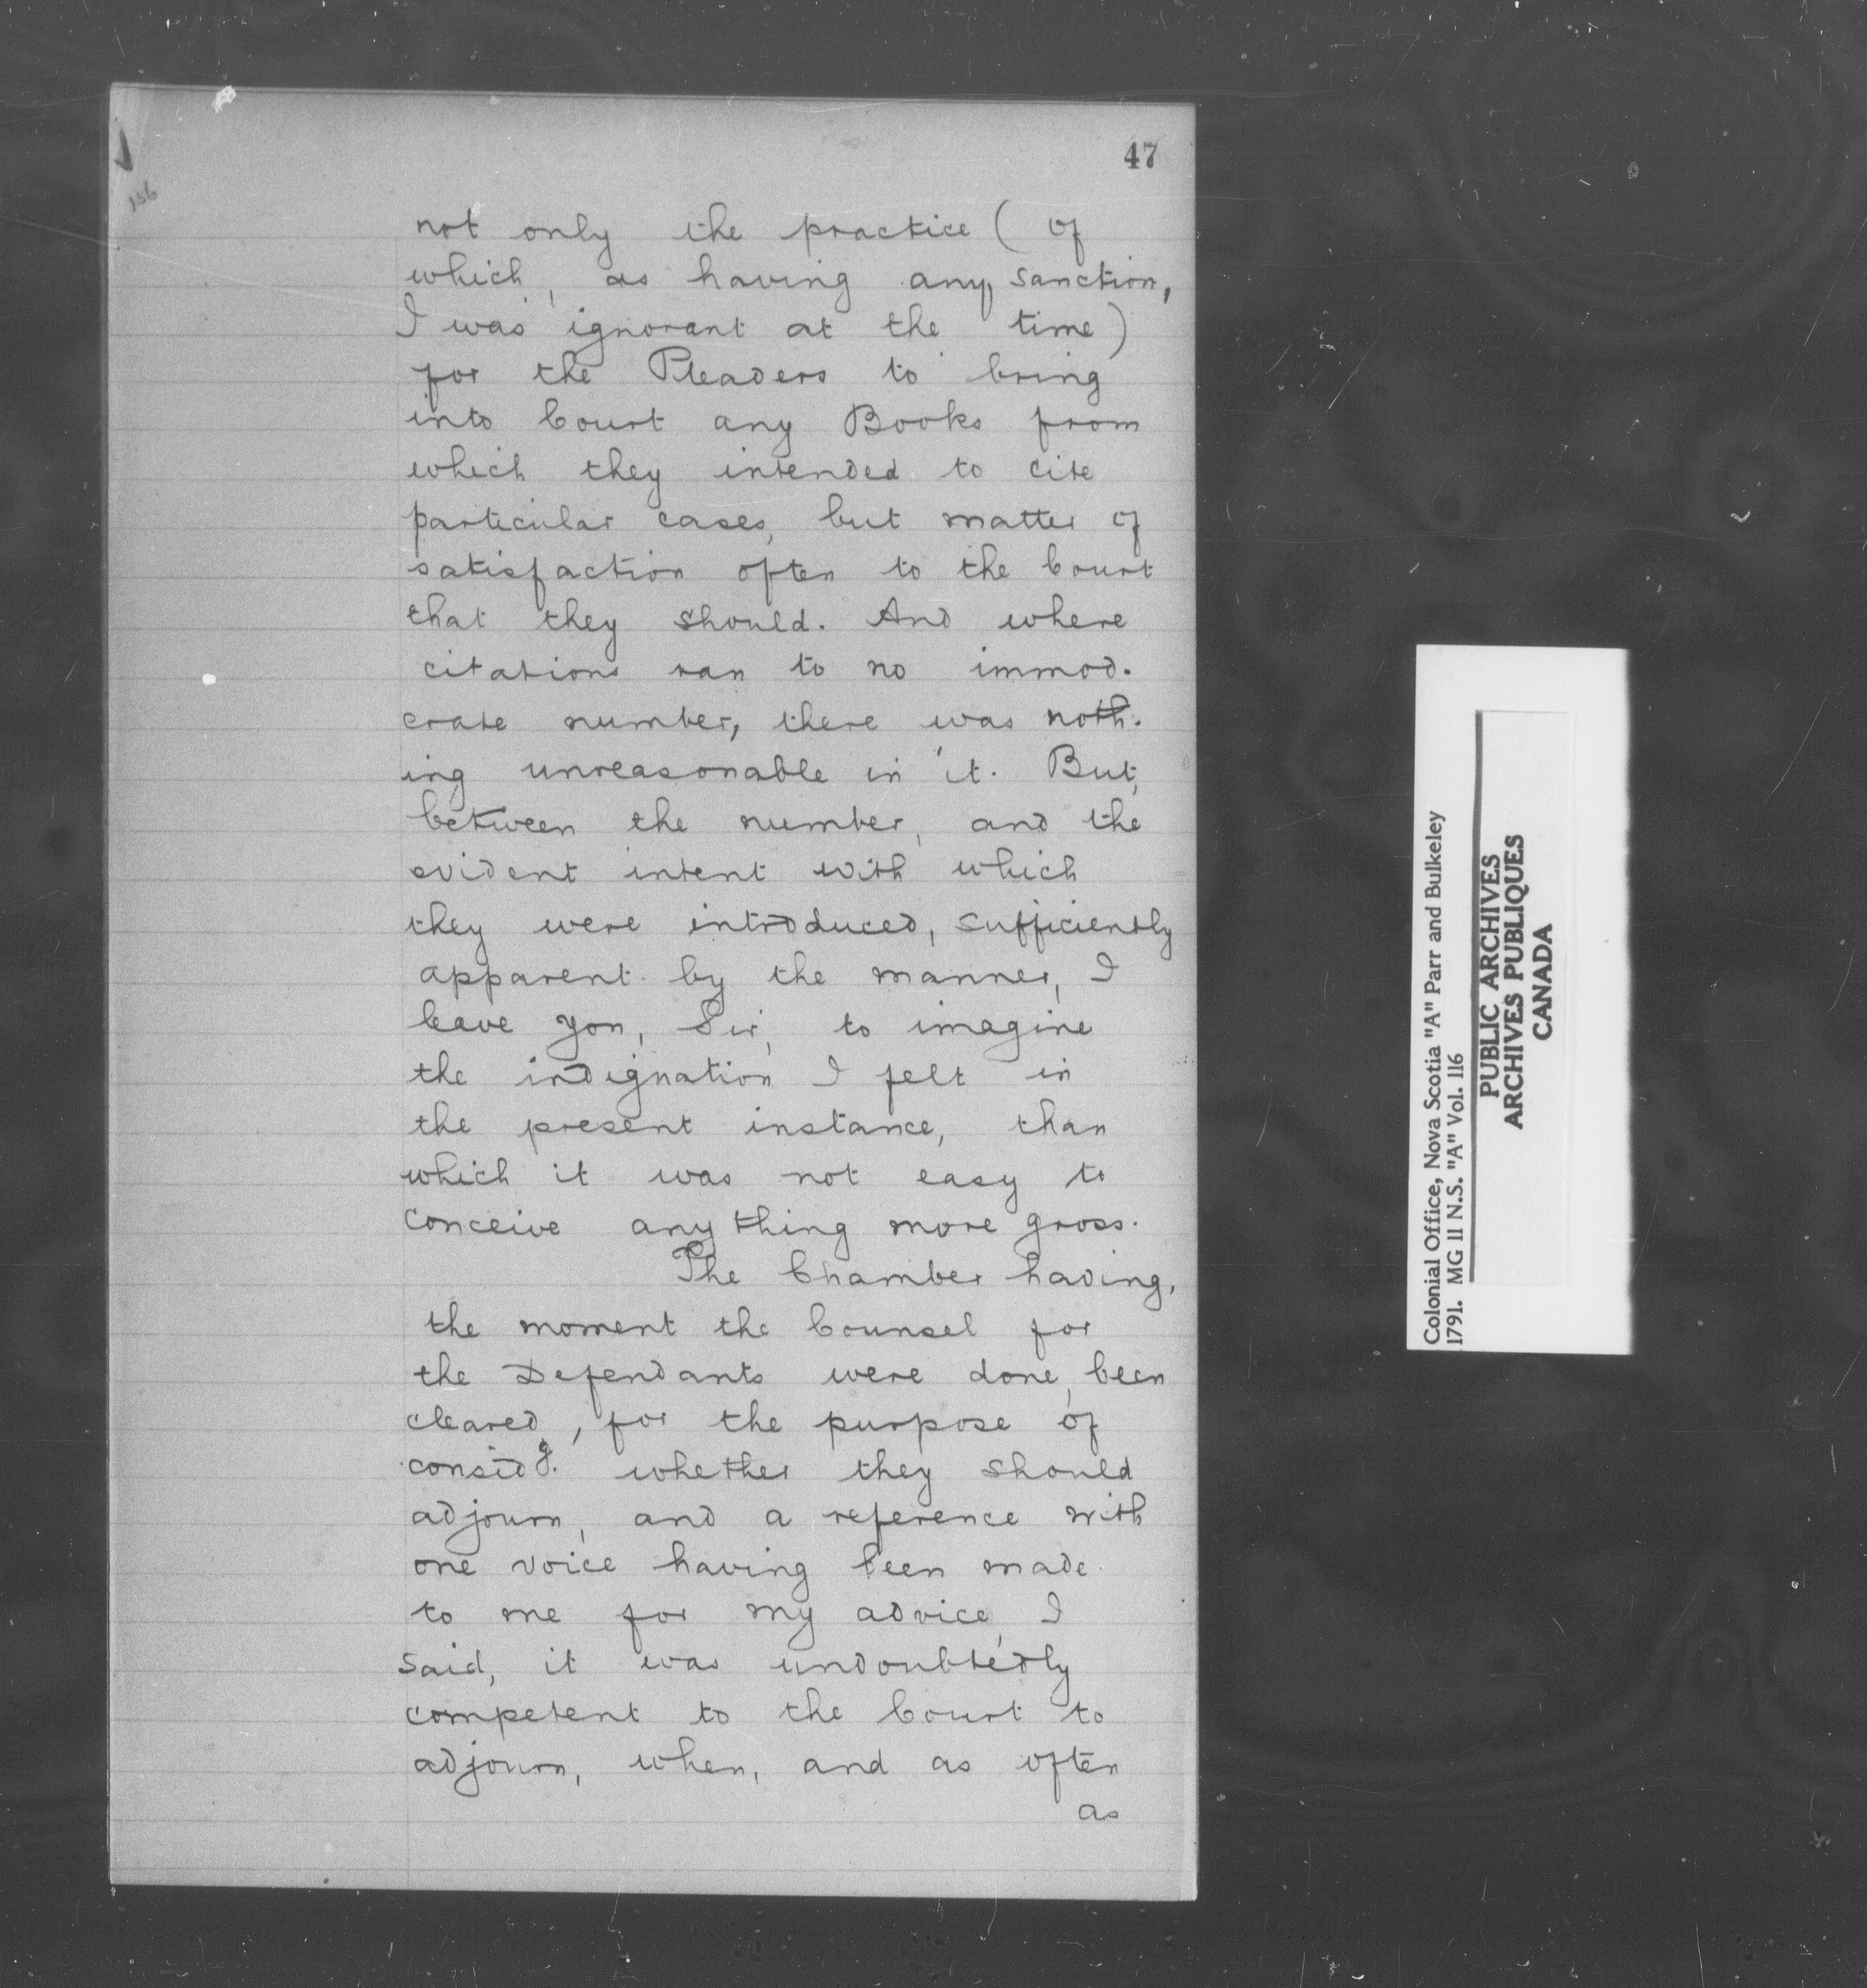 47
156
not only the practice ( of
which, as having any, sanction,
I was ignorant at the time)
for the Pleaders to bring
into Court any Books from
which they intended to cite
particular cases, but matter of
satisfaction often to the Court
that they should. And where
citations ran to no immod-
erate number, there was noth-
ing unreasonable in it. But,
between the number, and the
evident intent with which
they were introduced, sufficiently
apparent by the manner, I
leave you, Sir, to imagine
the indignation I felt in
the present instance, than
which it was not easy to
conceive any thing more gross.
The Chamber having,
the moment the Counsel for
the Defendants were done, been
cleared, for the purpose of
considg. whether they should
adjourn, and a reference with
one voice having been made
to me for my advice, I
said, it was undoubtedly
competent to the Court to
adjourn, when, and as often
as
Colonial Office, Nova Scotia "A" Parr and Bulkeley
1791. MG 11 N.S. "A" Vol. 116
PUBLIC ARCHIVES
ARCHIVES PUBLIQUES
CANADA